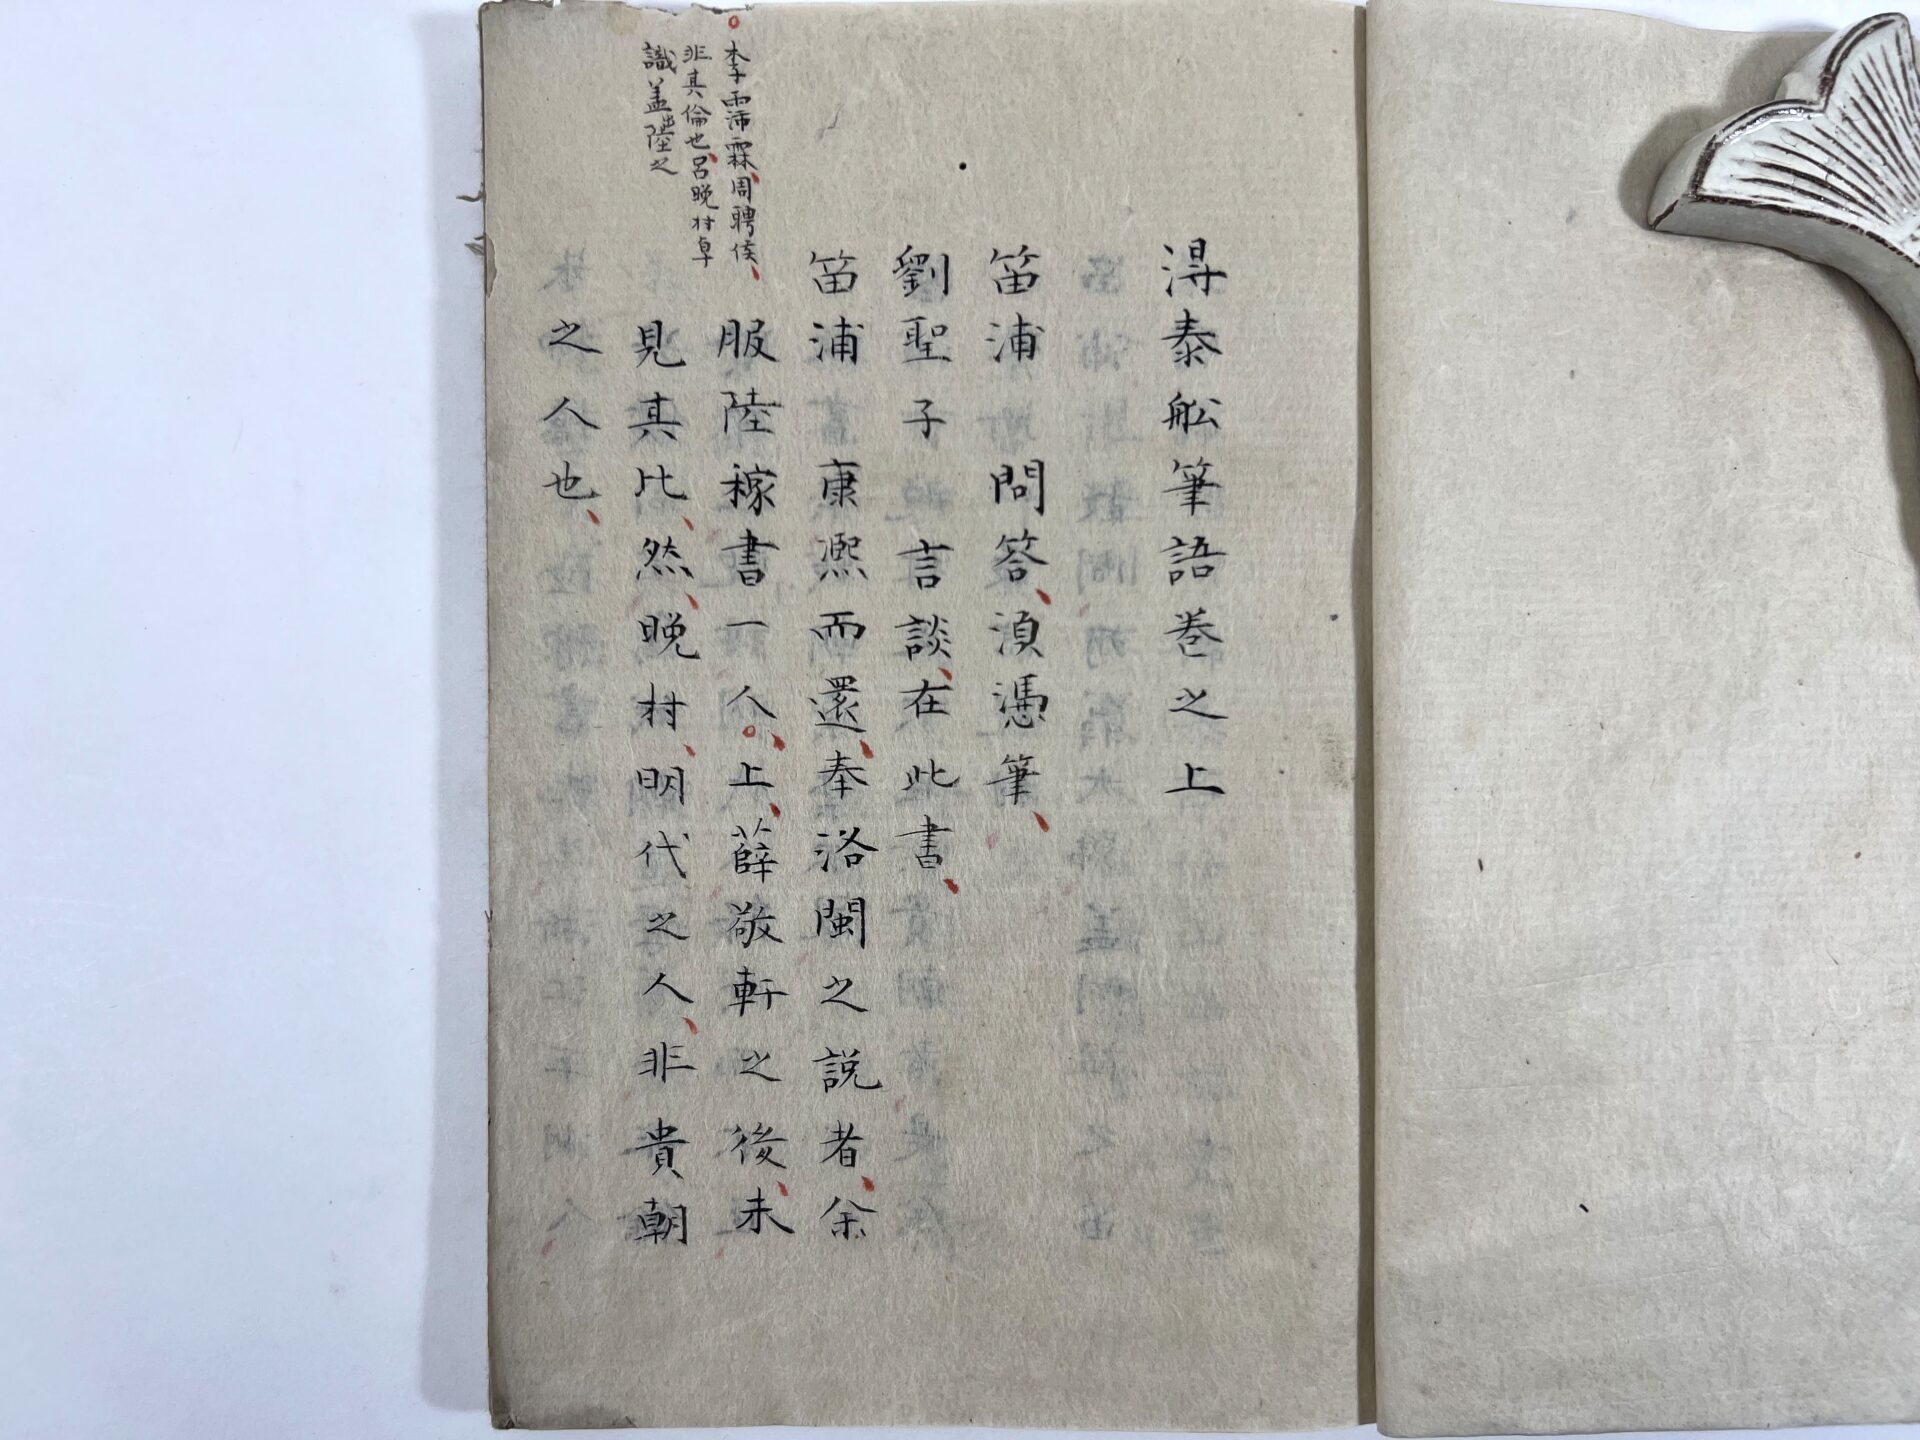 淂泰舩筆語巻之上
笛浦 問答、湏憑筆、
劉聖子 言談、在此書、
笛浦 康熙而還、奉洛閩之說者、余
服陸稼書一人。、上、薛敬軒之後、未
見其比、然、晩村、明代之人、非貴朝
之人也、
。李霈霖、周聘侯、
非其倫也、呂晩村卓
識盖出陸之